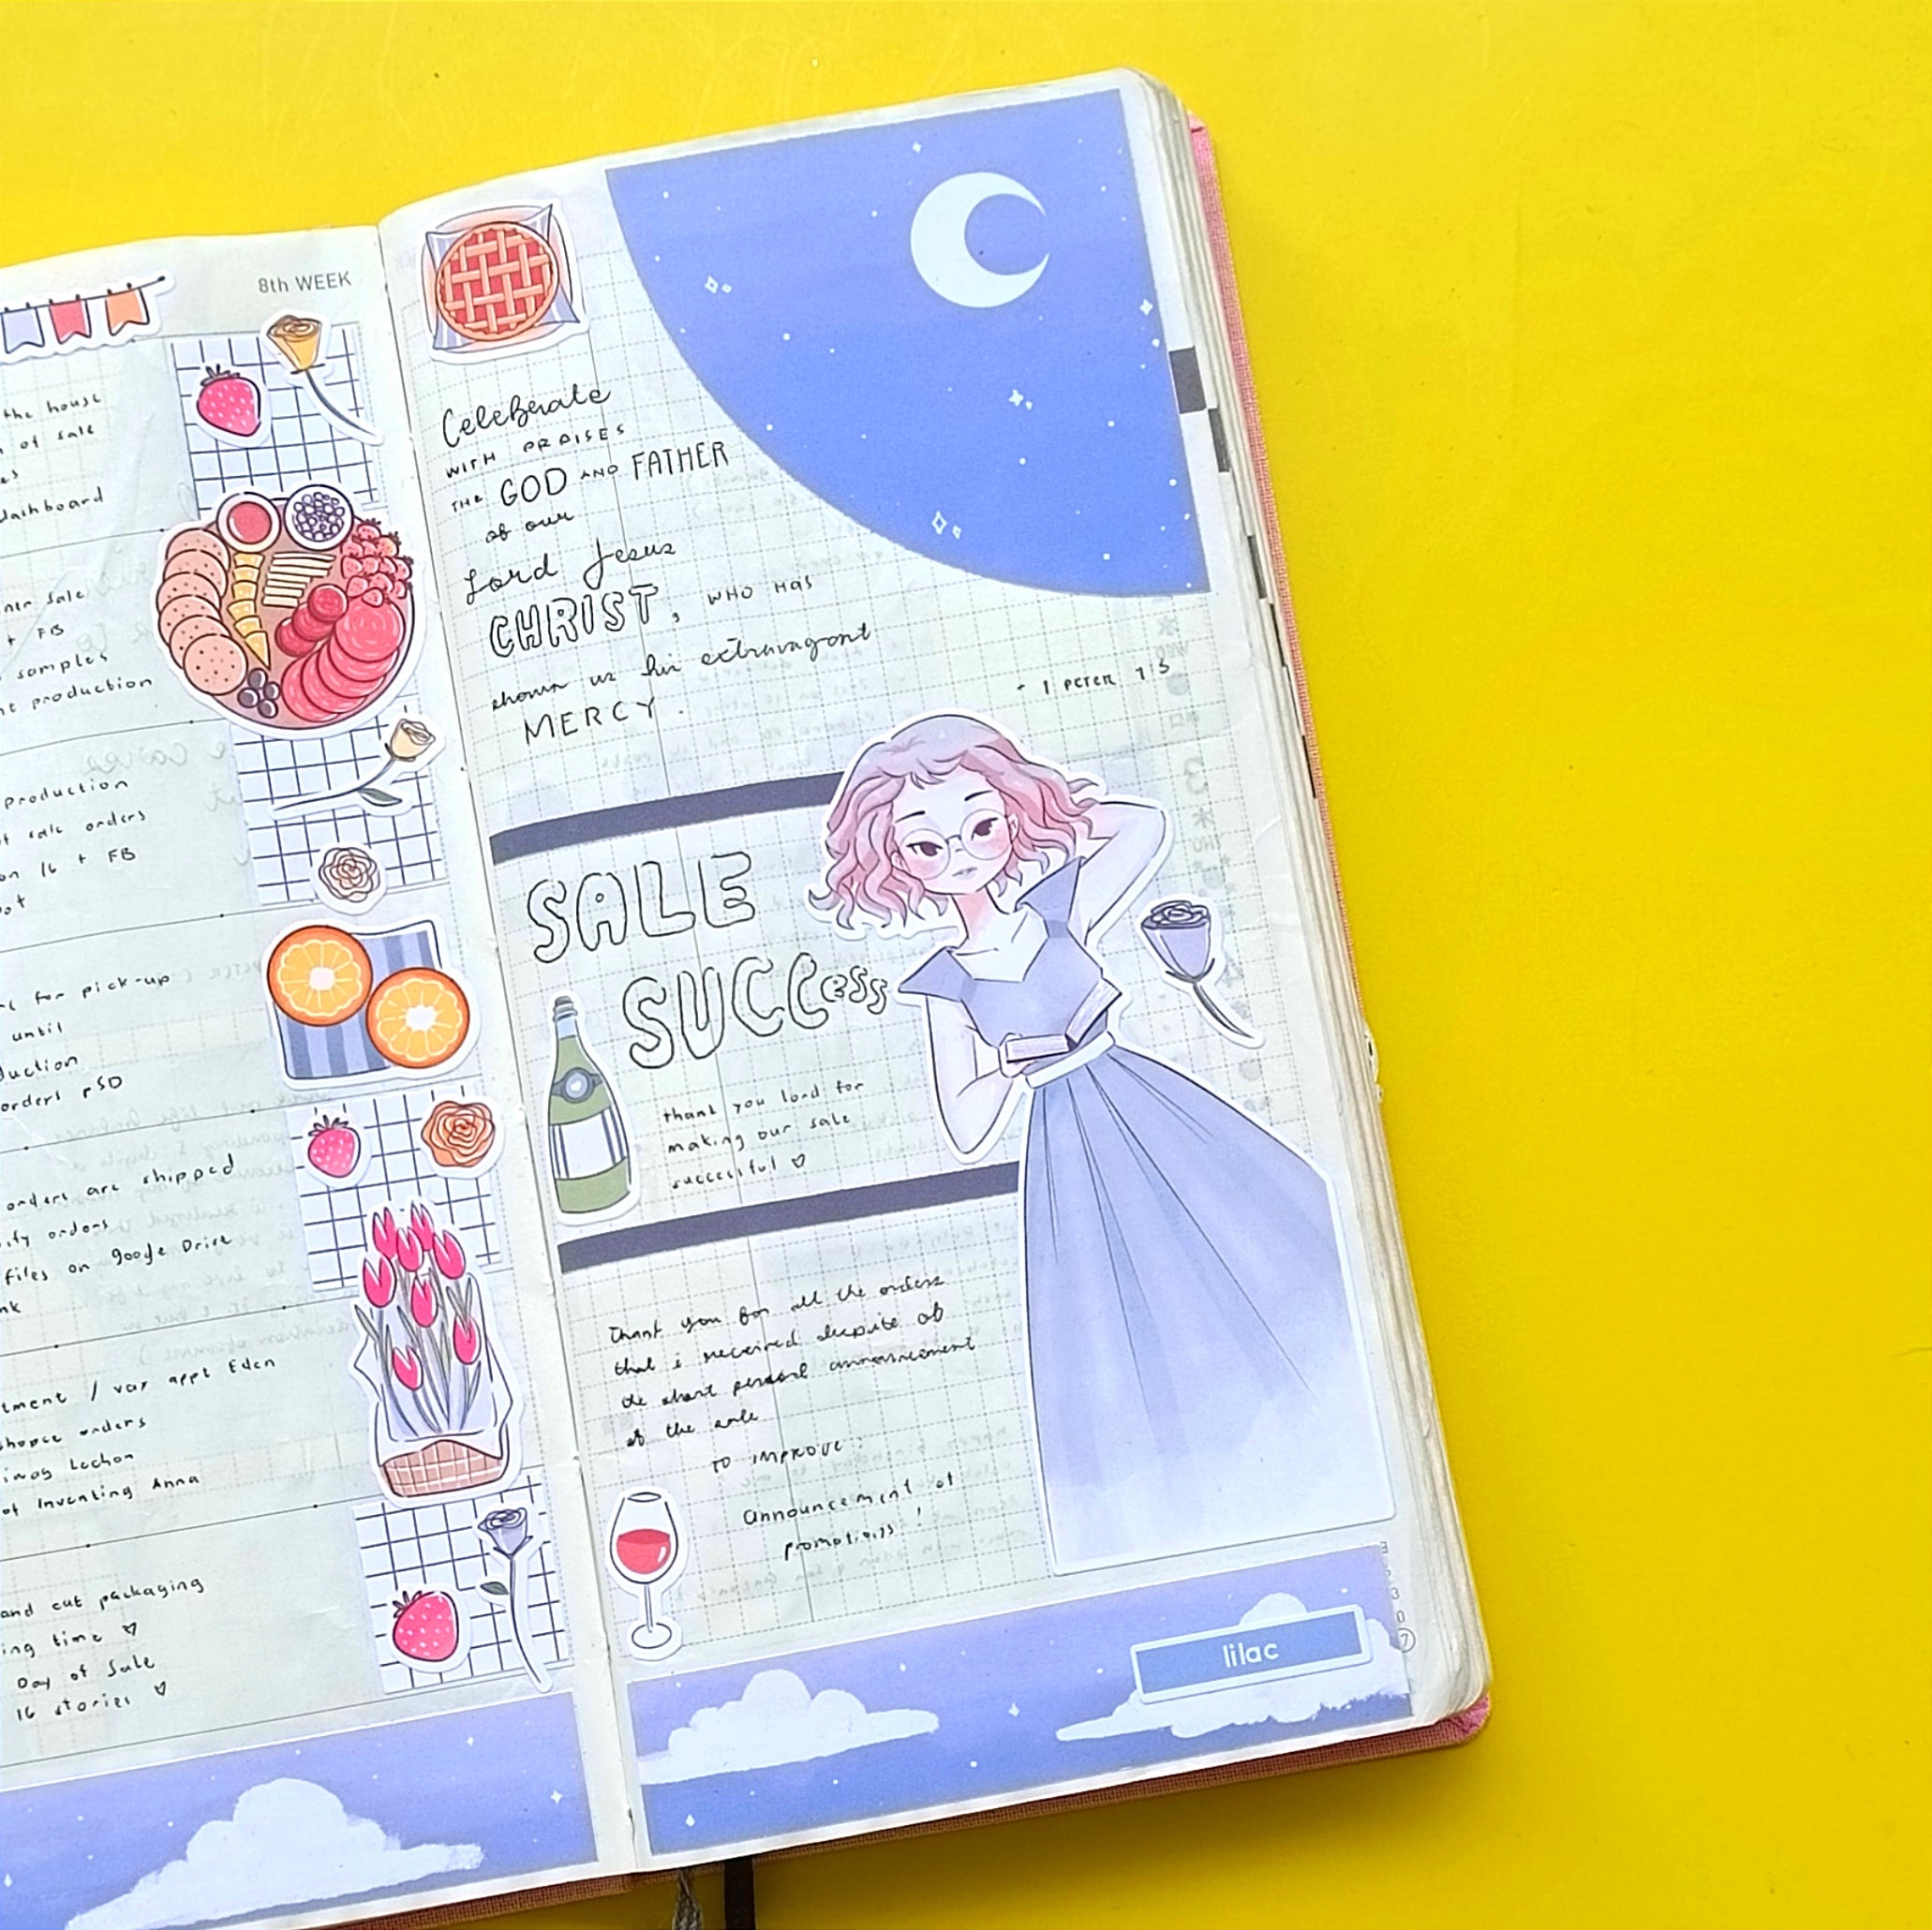 8th WEEK
the house
of sale
dashboard
sale
+ FB
samples
production
production
sale orders
on IG + FB
for pick-up
until
orders PSD
orders are shipped
orders
files on google Drive
/ vax appt Eden
orders
Lechon
of Inventing Anna
and cut packaging
time ♡
Day of Sale
IG stories ♡
Celebrate
WITH PRAISES
THE GOD AND FATHER
of our
Lord Jesus
CHRIST, WHO HAS
shown us his extravagant
MERCY.
- 1 PETER 1:3
SALE
SUCCess
thank you lord for
making our sale
successful ♡
Thank you for all the orders
that i received despite of
the short period announcement
of the sale
TO IMPROVE:
Announcement of
promotions!
lilac
7